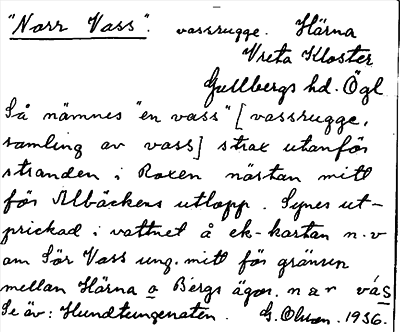 "Norr Vass". vassrugge. Härna
Vreta Kloster
Gullbergs hd. Ögl
Så nämnes "en vass" [vassrugge,
samling av vass] strax utanför
stranden i Roxen nästan mitt
för Ålbäckens utlopp. Synes ut-
prickad i vattnet å ek-kartan n.v
om Sör Vass ung. mitt för gränsen
mellan Härna o Bergs ägor. nær vás
Se äv: Hundtungenaten. G. Olson. 1936.